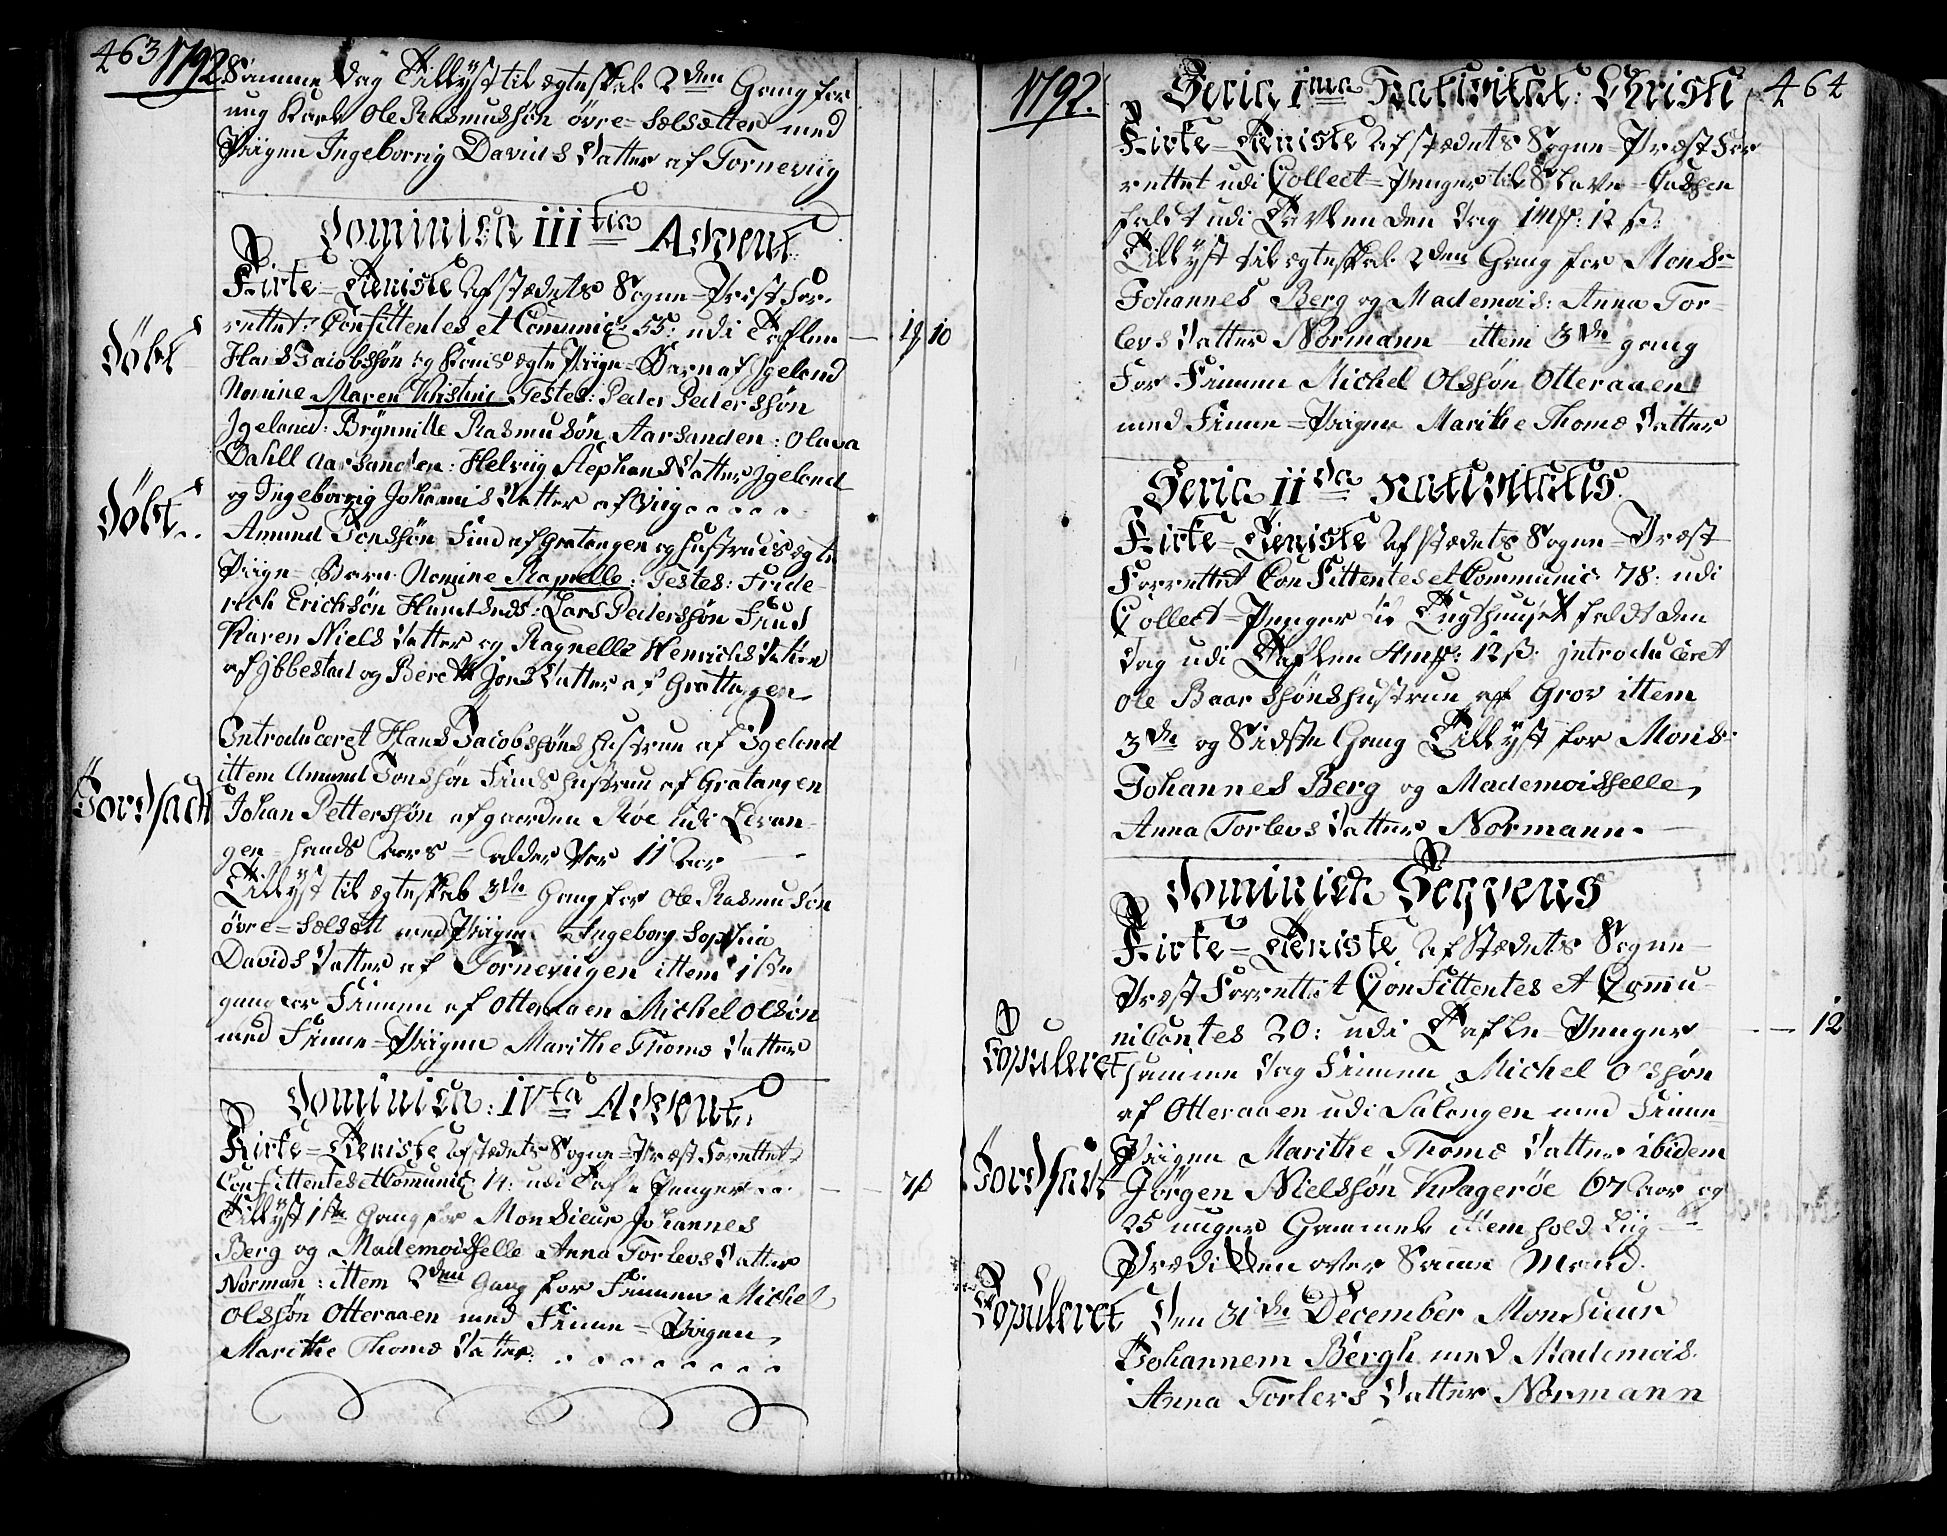 463
1792
Samme Dag Tillÿst til ægteskab 2den Gang for
ung Karl Ole Rasmussøn øvre=Sælsætter med
Piigen Ingeborrig Davids Datter af Tornewiig
Dominica IIItia Advent:
Kirke=Tieniste Af stædets Sogne=Præst For-
rettet: Confittentes et Comunic: 55: udi Taflen — 1 10
Døbt
Hans Jacobssøn og Konis ægte Piige=Barn af Jgeland
Nomine Maren Kirstine Testes: Peder Pedersøn
Jgeland: Brÿnnille Rasmusøn Aarsanden: Olava
Dahll Aarsanden: Helviig StephansDatter Jgeland
og Ingeborrig Johannis Datter af Viig
Døbt
Amund Jonssøn Find af Gratangen og Hustrues ægte
Piige=Barn Nomine Ragnelle: Testes: Fride-
rich Ericksøn Hundstad: Lars Pederssøn Find
Karen Niels Datter og Ragnelle Henrichs Datter
af Jbbestad og Berett Jons Datter af Grattangen
Introduceret Hans Jacobssøns Hustrue af Jgeland
ittem Amund Jonssøn Finds Hustrue af Gratangen
Jordfæstet
Johan Petterssøn af gaarden Røe udi Levan-
gen=hands Aars=alder Var 11 Aar
Tillÿst til ægteskab 3de Gang for Ole Rasmusøn
øvre=Sælsætt med Piigen Ingeborg Sophia
Davids Datter af Tornewiigen ittem 1ste
gang for Finnen af Otteraaen Michel Olsøn
med Finne=Piigen Marithe Thomæ Datter
Dominica: IVta Advent:
Kirke=Tieniste Af stædets Sogne=Præst Forrettet
Confittentes et Comunic: 14: udi Tafle Penger — 7 ß
Tillÿst 1ste Gang for Monsieur Johannes
Berg og Mademoisselle Anna Torlevs Datter
Norman: ittem 2den Gang for Finnen Michel
Olssøn Otteraaen med Finne=Piigen
Marithe Thomæ Datter:
1792.
464
Feria Ima Nativitat: Christi
Kirke=Tieniste Af stædets Sogne=Præst For
rettet udi Collect=Penger til Slave=Cassen
faldt udi Tavlen den Dag 1 mß: 12 ß:
Tillÿst til ægteskab 2den Gang for Monsr
Johannes Berg og Mademois: Anna Tor-
levs Datter Normann ittem 3de gang
For Finnen Michel Olssøn Otteraaen
med Finne=Piigen Marithe Thomæ Datter
Feria IIda Nativitatis
Kirke=Tieniste Af stædets Sogne=Præst
Forrettet Confittentes et Communic: 78: udi
Collect=Penger til Tugthuuset faldt den
Dag udi Taflen 4 mß: 12 ß: jntroduceret
Ole Baarssøns hustrue af Grov ittem
3de og Sidste Gang Tillÿst for Mons:
Johannes Berg og Mademoisselle,
Anna Torlevs Datter Normann.
Dominica Seqvens
Kirke=Tieniste Af stædets Sogne-
Præst Forrettet Confittentes et Commu-
nicantes 20: udi Tafle=Penger — 12
Copuleret
samme Dag Finnen Michel Olssøn
af Otteraaen udi Salangen med Finne-
Piigen Marithe Thomæ Datter ibidem
Jordfæstet
Jørgen Nielssøn Kragerøe 67 Aar og
25 uuger Gammel ittem hold Liig=
Prædiken over Samme Mand.
Copuleret
Den 31de December Monsieur
Johannem Bergh med Mademois.
Anna Torlevs Datter Normann